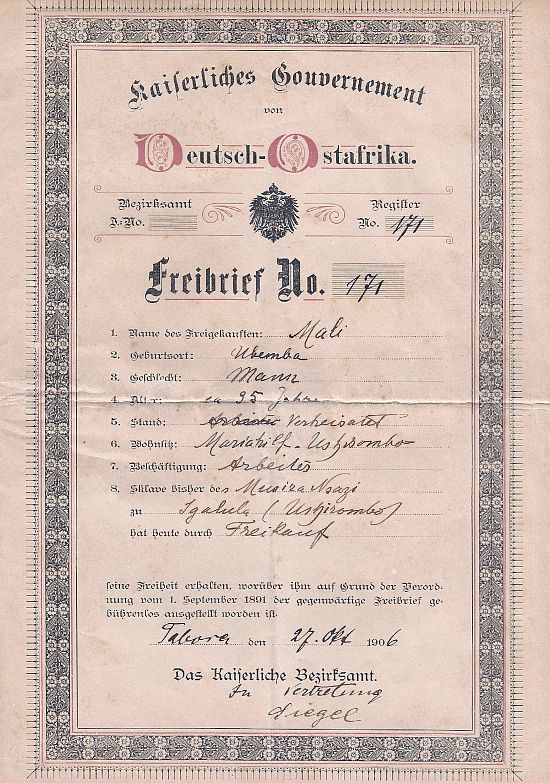 Kaiserliches Gouvernement
von
Deutsch-Ostafrika.
Bezirksamt
J.-No.
Register
No. 171
Freibrief No. 171
1. Name des Freigekauften: Mali
2. Geburtsort: Ubemba
3. Geschlecht: Mann
4. Alter: ca 25 Jahre
5. Stand: Arbeiter Verheiratet
6. Wohnsitz: Mariahilf - Ushirombo
7. Beschäftigung: Arbeiter
8. Sklave bisher des Musira Nsazi
zu Igalula (Ushirombo)
hat heute durch Freikauf
seine Freiheit erhalten, worüber ihm auf Grund der Verord-
nung vom 1. September 1891 der gegenwärtige Freibrief ge-
bührenlos ausgestellt worden ist.
Tabora den 27. Okt 1906
Das Kaiserliche Bezirksamt.
In Vertretung
Siegel